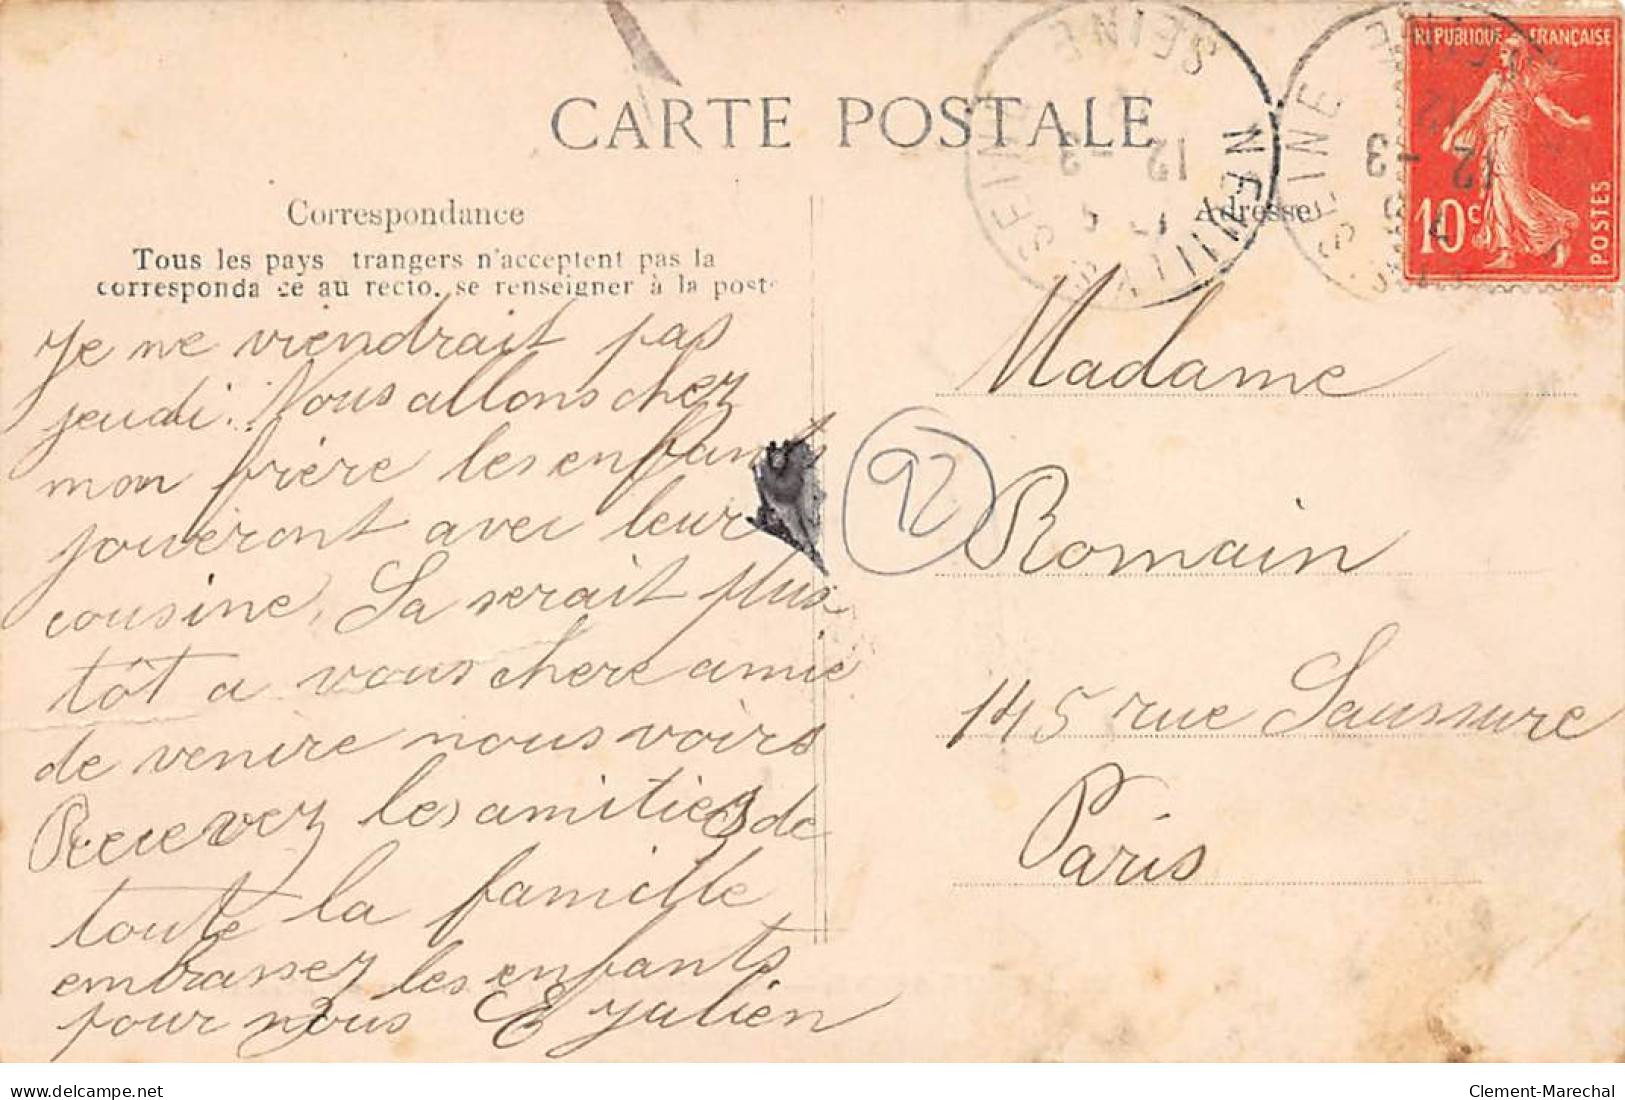 CARTE POSTALE
Correspondance
Tous les pays trangers n'acceptent pas la
corresponda ce au recto. se renseigner à la post
Je ne viendrait pas
jeudi. Nous allons chez
mon frère les enfants
joueront avec leur
cousine. Sa serait plus
tôt a vous chere amie
de venire nous voirs
Recevez les amities de
toute la famille
embrassez les enfants
pour nous E Julien
SEINE
12 -3
12
NEUILLY SUR SEINE
SEINE
12 -3
12
RÉPUBLIQUE FRANÇAISE
10c
POSTES
Adresse
Madame
92
Romain
145 rue Saussure
Paris
delcampe.net
Clement-Marechal